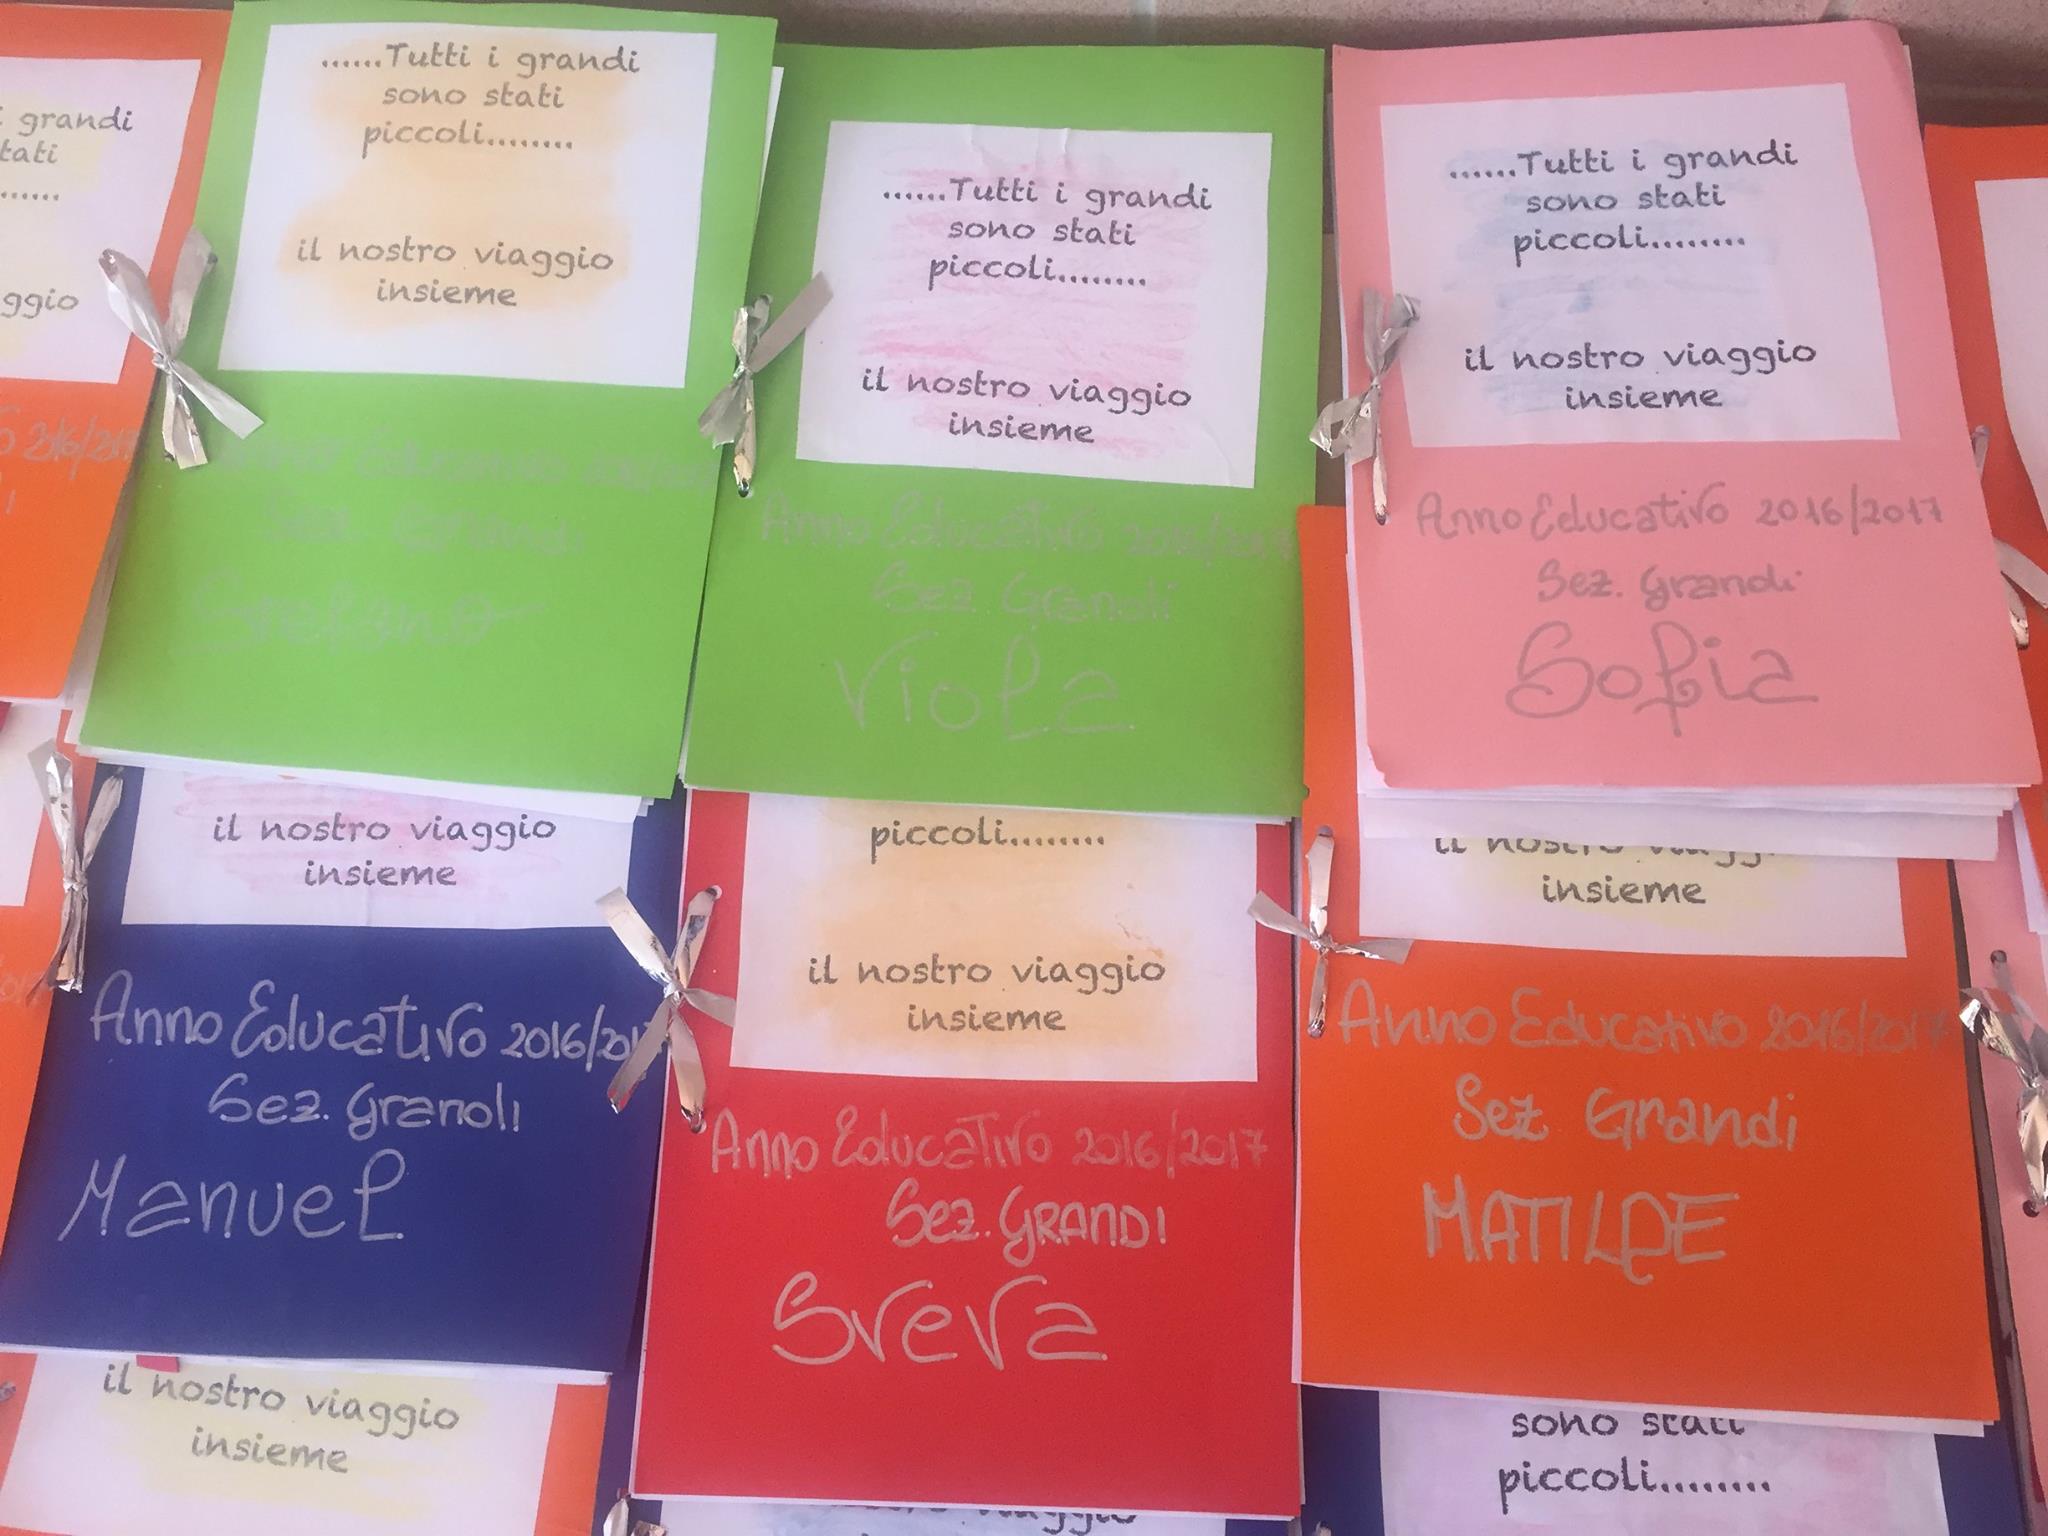 i grandi
tati
ggio
......Tutti i grandi
sono stati
piccoli........
il nostro viaggio
insieme
Anno Educativo
Sez Grandi
Stefano
......Tutti i grandi
sono stati
piccoli........
il nostro viaggio
insieme
Anno Educativo 2016/2017
Sez. Grandi
Viola
......Tutti i grandi
sono stati
piccoli........
il nostro viaggio
insieme
Anno Educativo 2016/2017
Sez. Grandi
Sofia
il nostro viaggio
insieme
Anno Educativo 2016/201
Sez. Grandi
Manuel
piccoli........
il nostro viaggio
insieme
Anno Educativo 2016/2017
Sez. GRANDI
Sveva
il nostro viaggio
insieme
Anno Educativo 2016/2017
Sez Grandi
MATILDE
il nostro viaggio
insieme
sono stati
piccoli........